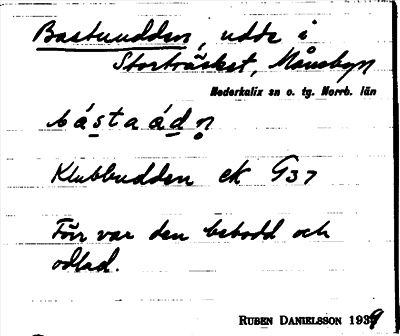 Bastuudden, udde i
Storträsket, Månsbyn
Nederkalix sn o. tg. Norrb. län
bástaádn̥
Klubbudden ek G37
Förr var den bebodd och
odlad.
RUBEN DANIELSSON 1939